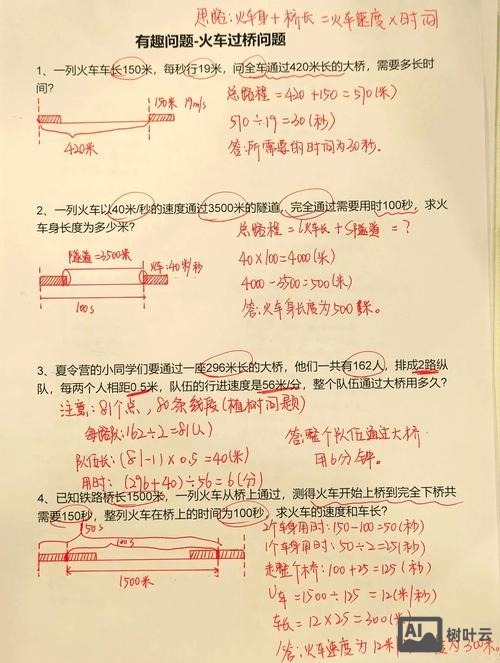 思路:火车身+桥长=火车速度×时间
有趣问题-火车过桥问题
1、一列火车车长150米，每秒行19米，问全车通过420米长的大桥，需要多长时
间?
总路程=420+150=570(米)
150米 19m/s
570÷19=30(秒)
420米
答:所需要的时间为30秒.
2、一列火车以40米/秒的速度通过3500米的隧道，完全通过需要用时100秒，求火
车身长度为多少米?
总路程=火车长+S隧道=?
隧道=3500米
火车:40米/秒
40×100=4000(米)
4000-3500=500(米)
100s
答:火车身长度为500米.
3、夏令营的小同学们要通过一座296米长的大桥，他们一共有162人，排成2路纵
队，每两个人相距0.5米，队伍的行进速度是56米/分，整个队伍通过大桥用多久?
注意:81个点,80条线段(植树问题)
每路队:162÷2=81(人)
答:整个队伍通过大桥
队伍长:(81-1)×0.5=40(米)
用6分钟。
用时:(296+40)÷56=6(分)
4、已知铁路桥长1500米，一列火车从桥上通过，测得火车开始上桥到完全下桥共
需要150秒，整列火车在桥上的时间为100秒，求火车的速度和车长?
150s
2个车身用时:150-100=50(秒)
100s
1个车身用时:50÷2=25(秒)
走整个桥:100+25=125(秒)
1500米
V车=1500÷125=12(米/秒)
车长=12×25=300(米)
答:火车速度为12米
为300米
AI 树叶云